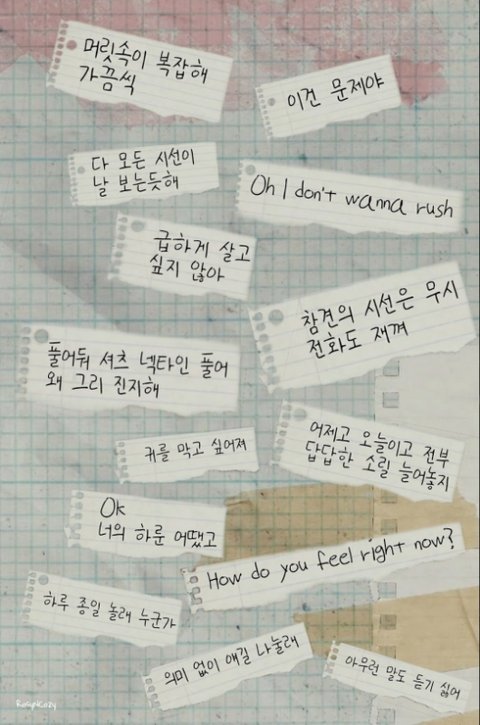 머릿속이 복잡해
가끔씩
이건 문제야
다 모든 시선이
날 보는듯해
Oh I don't wanna rush
급하게 살고
싶지 않아
참견의 시선은 무시
전화도 재껴
풀어둬 셔츠 넥타인 풀어
왜 그리 진지해
귀를 막고 싶어져
어제고 오늘이고 전부
답답한 소릴 늘어놓지
Ok
너의 하룬 어땠고
How do you feel right now?
하루 종일 놀래 누군가
의미 없이 얘길 나눌래
아무런 말도 듣기 싫어
RosyNCozy